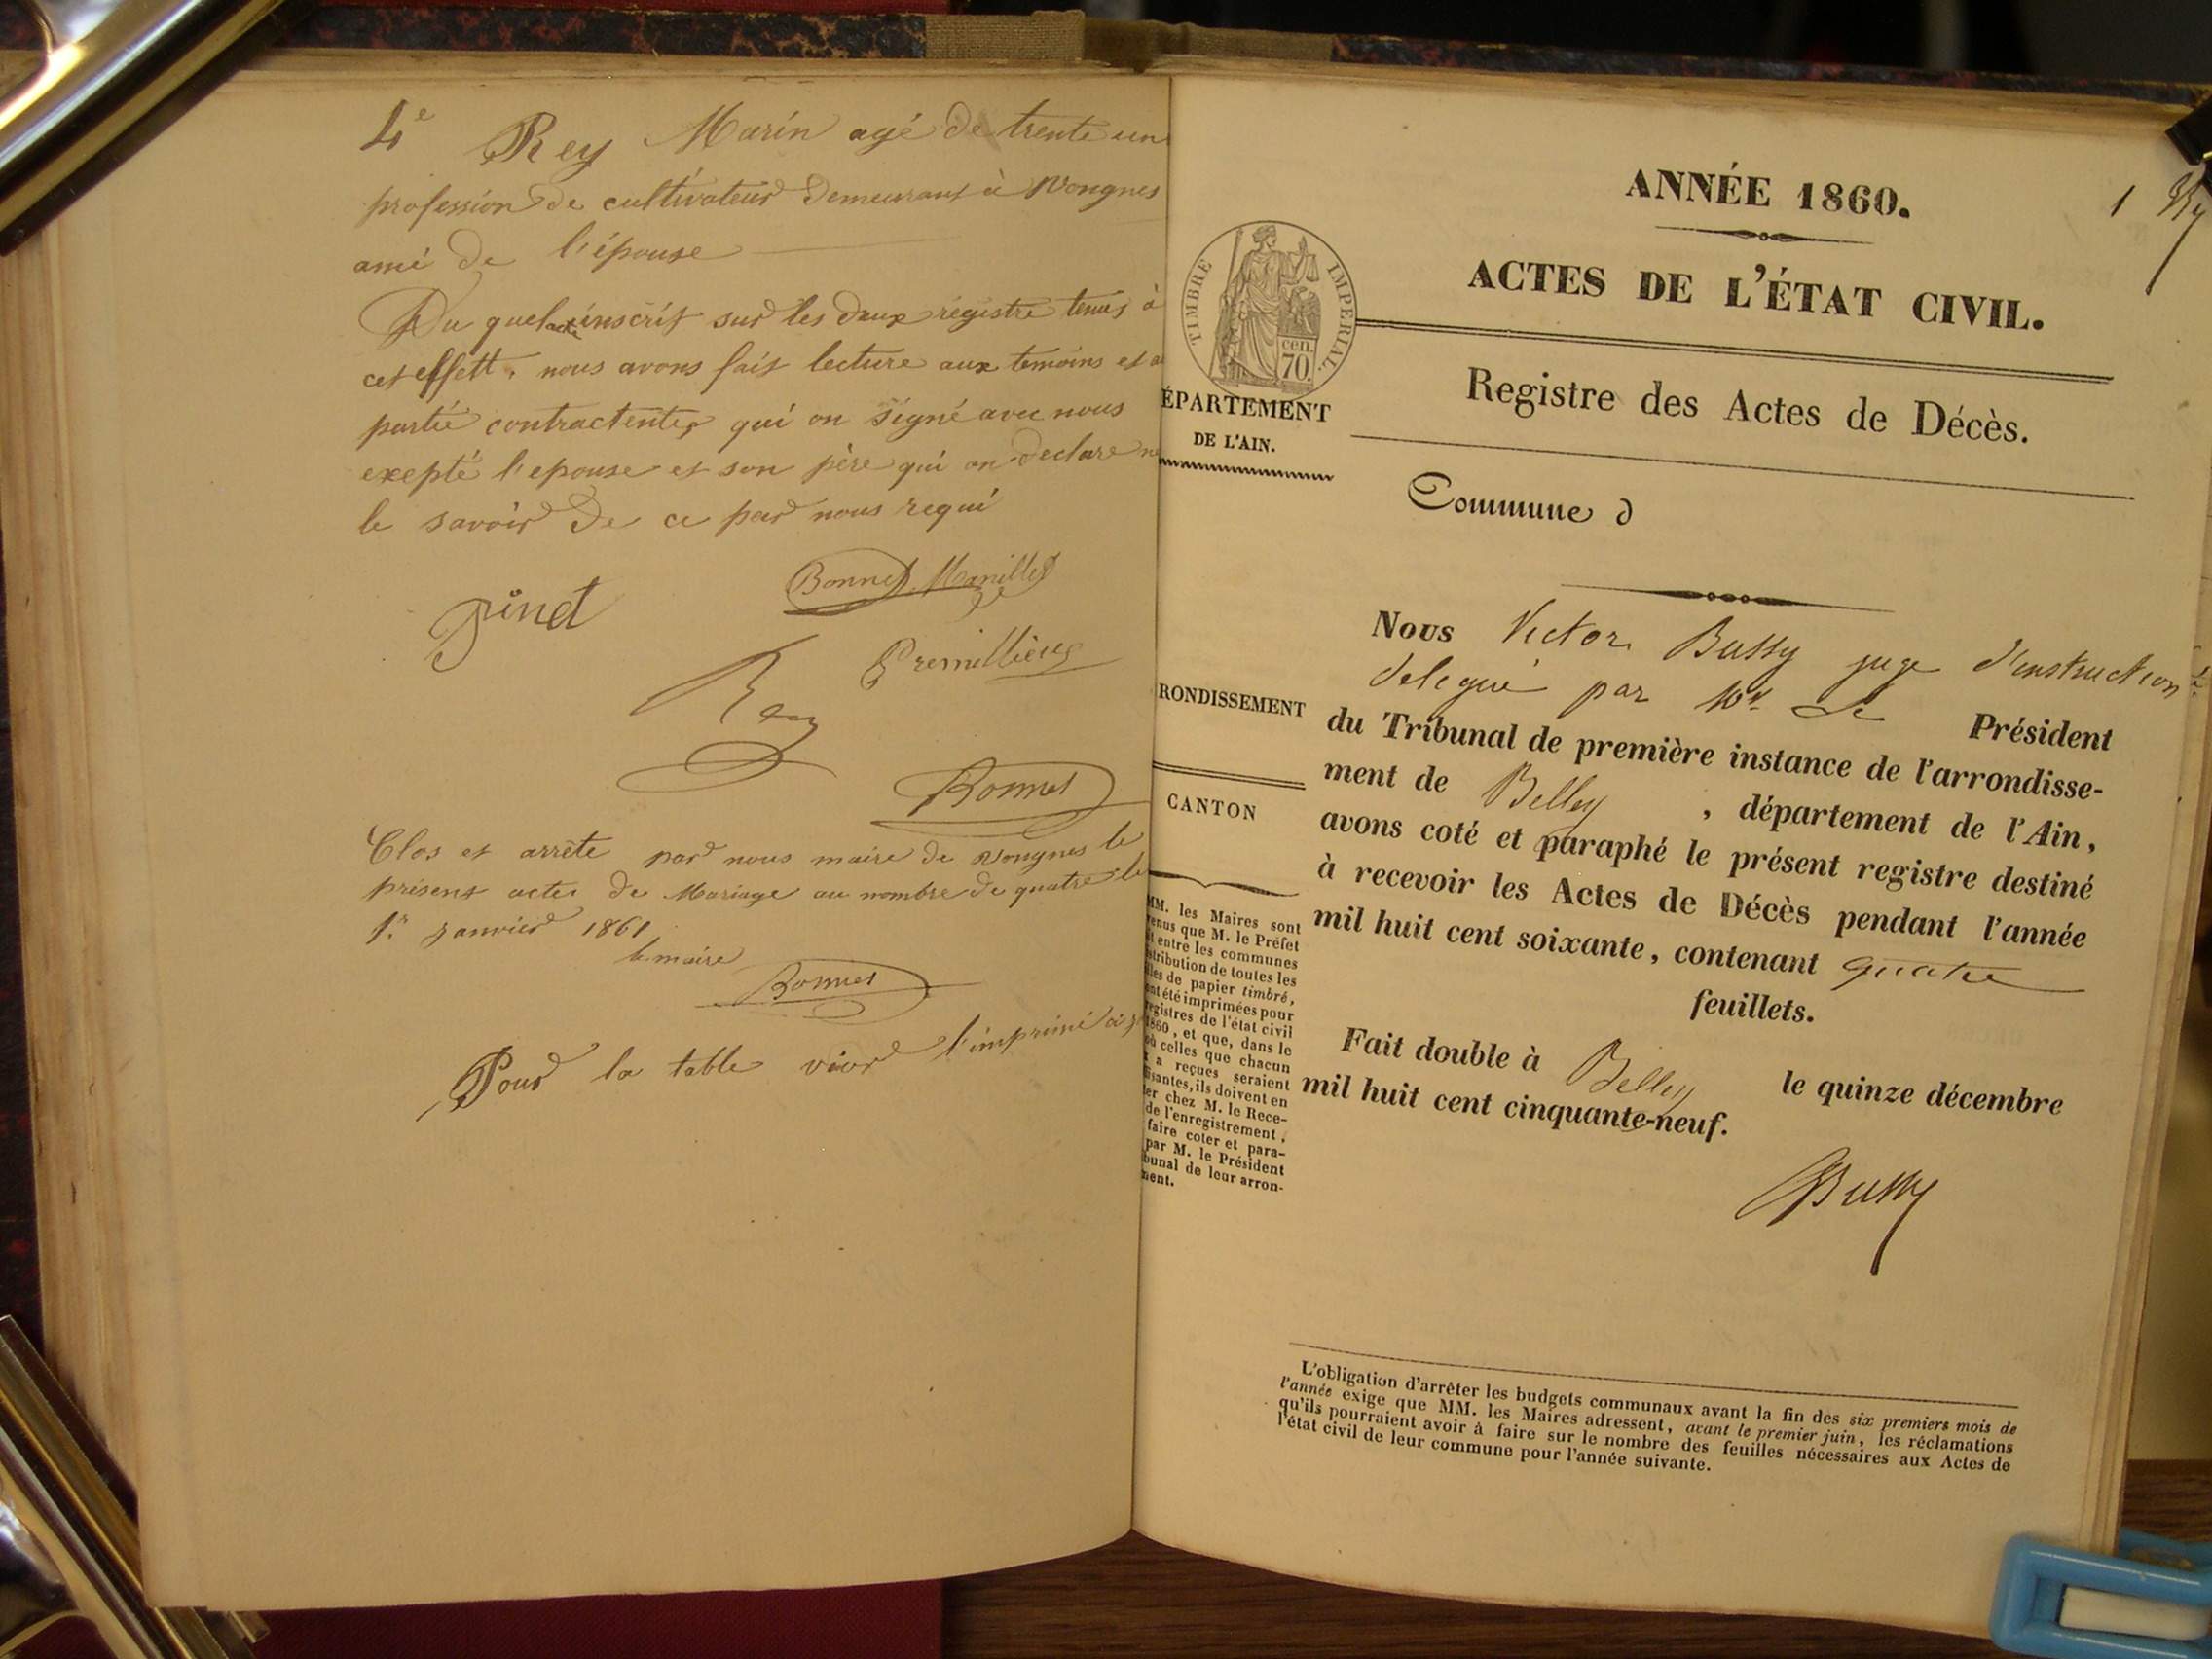 4e Rey Marin agé de trente un
profession de cultivateur demeurant à Vongnes
ami de l'épouse
Du quel acte inscrit sur les deux régistre tenus à
cet effett, nous avons fait lecture aux temoins et a
partie contractente, qui on signé avec nous
exepté l'epouse et son père qui on declare ne
le savoir de ce par nous requi
Pinet
Bonnet Manillet
Premillieu
Rey
Bonnet
Clos et arrête par nous maire de Vongnes le
présent actes de Mariage au nombre de quatre le
1er Janvier 1861
le maire
Bonnet
Pour la table voir l'imprimé à
1
ANNÉE 1860.
ACTES DE L'ÉTAT CIVIL.
TIMBRE IMPÉRIAL.
cen.
70.
ÉPARTEMENT
DE L'AIN.
Registre des Actes de Décès.
Commune d
RONDISSEMENT
CANTON
MM. les Maires sont
enus que M. le Préfet
it entre les communes
stribution de toutes les
lles de papier timbré,
ont été imprimées pour
registres de l'état civil
1860, et que, dans le
où celles que chacun
x a reçues seraient
isantes, ils doivent en
er chez M. le Rece-
de l'enregistrement,
faire coter et para-
par M. le Président
bunal de leur arron-
ment.
Nous Victor Bussy juge d'instruction
delegué par Mr. le Président
du Tribunal de première instance de l'arrondisse-
ment de Belley , département de l'Ain,
avons coté et paraphé le présent registre destiné
à recevoir les Actes de Décès pendant l'année
mil huit cent soixante, contenant quatre
feuillets.
Fait double à Belley le quinze décembre
mil huit cent cinquante-neuf.
Bussy
L'obligation d'arrêter les budgets communaux avant la fin des six premiers mois de
l'année exige que MM. les Maires adressent, avant le premier juin, les réclamations
qu'ils pourraient avoir à faire sur le nombre des feuilles nécessaires aux Actes de
l'état civil de leur commune pour l'année suivante.